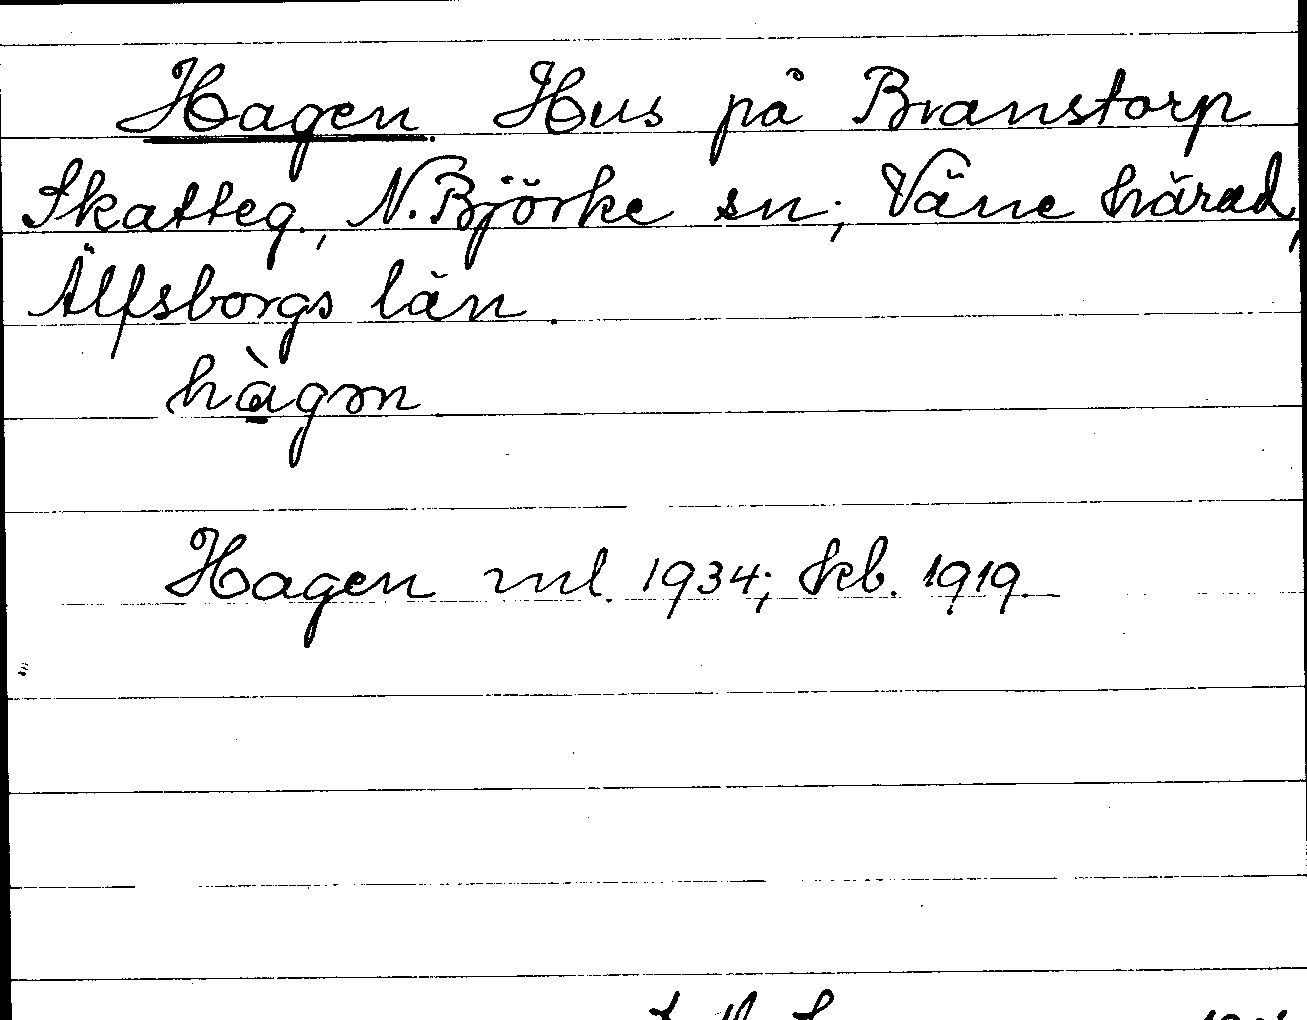 Hagen. Hus på Branstorp
Skatteg., N. Björke sn; Väne härad,
Älfsborgs län.
hàgɷn
Hagen ml. 1934; kb. 1919.